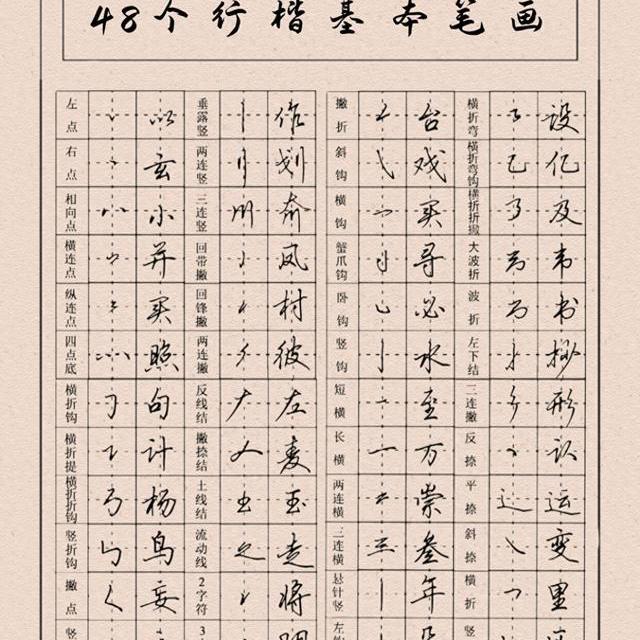 48个行楷基本笔画
左点 以 垂露竖 作 撇折 台 横折弯 设
右点 玄 两连竖 划 斜钩 戏 横折弯钩 亿
相向点 小 三连竖 俞 横钩 买 横折折撇 及
横连点 并 回带撇 凤 蟹爪钩 寻 大波折 韦
纵连点 买 回锋撇 村 卧钩 必 波折 书
四点底 照 两连撇 彼 竖钩 水 左下结 抄
横折钩 句 反线结 左 短横 垄 三连撇 形
横折提 计 撇捺结 麦 长横 万 反捺 识
横折折钩 杨 土线结 玉 两连横 崇 平捺 运
竖折钩 鸟 流动线 走 三连横 叁 斜捺 变
撇点 妄 2字符 将 悬针竖 年 横折 里